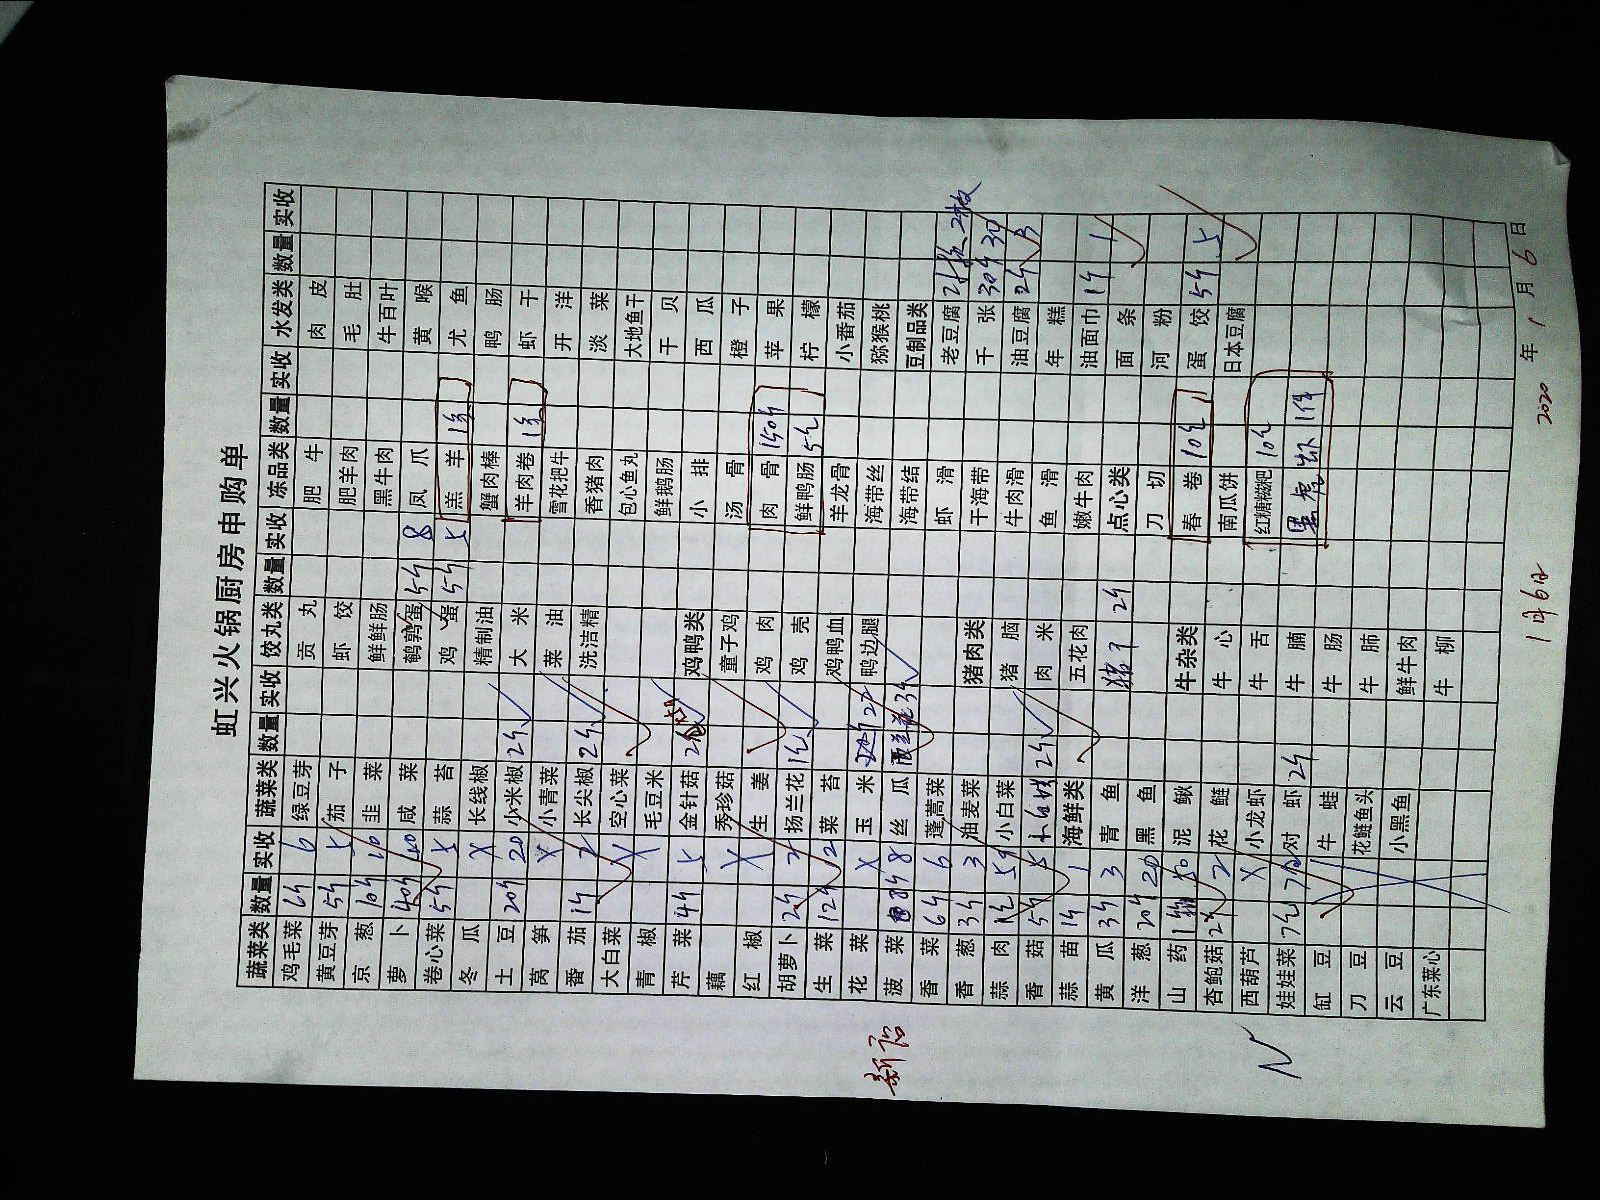 虹兴火锅厨房申购单
蔬菜类 数量 实收 蔬菜类 数量 实收 饺丸类 数量 实收 冻品类 数量 实收 水发类 数量 实收
鸡毛菜 6斤 6 绿豆芽 贡丸 肥牛 肉皮
黄豆芽 5斤 5 茄子 虾饺 肥羊肉 毛肚
京葱 10斤 10 韭菜 鲜鲜肠 黑牛肉 牛百叶
萝卜 40斤 40 咸菜 鹌鹑蛋 5斤 8 凤爪 黄喉
卷心菜 5斤 5 蒜苔 鸡蛋 5斤 5 羔羊 1条 尤鱼
冬瓜 X 长线椒 精制油 蟹肉棒 鸭肠
土豆 20斤 20 小米椒 2斤 大米 羊肉卷 1条 虾干
莴笋 X 小青菜 菜油 雪花把牛 开洋
番茄 1斤 2 长尖椒 2斤 洗洁精 香猪肉 淡菜
大白菜 X 空心菜 包心鱼丸 大地鱼干
青椒 X 毛豆米 鲜鹅肠 干贝
芹菜 4斤 5 金针菇 鸡鸭类 小排 西瓜
藕 秀珍菇 童子鸡 汤骨 橙子
红椒 X 生姜 鸡肉 肉骨 150斤 苹果
胡萝卜 2斤 2 扬兰花 1包 鸡壳 鲜鸭肠 5包 柠檬
生菜 12斤 12 菜苔 鸡鸭血 羊龙骨 小番茄
花菜 X 玉米 22 鸭边腿 海带丝 猕猴桃
菠菜 8斤 8 丝瓜 海带结 豆制品类
香菜 6斤 6 蓬蒿菜 虾滑 老豆腐 2板 2板
香葱 3斤 3 油麦菜 猪肉类 干海带 千张 30斤 30
蒜肉 1包 5斤 小白菜 猪脑 牛肉滑 油豆腐 2斤 3
香菇 5斤 5 2斤 肉米 鱼滑 年糕
蒜苗 1斤 1 海鲜类 五花肉 嫩牛肉 油面巾 1斤 1
黄瓜 3斤 3 青鱼 猪下 2斤 点心类 面条
洋葱 20斤 20 黑鱼 刀切 河粉
山药 泥鳅 牛杂类 春卷 10包 蛋饺 5斤 5
杏鲍菇 2斤 2 花鲢 牛心 南瓜饼 日本豆腐
西葫芦 X 小龙虾 牛舌 红糖糍粑 10包
娃娃菜 7包 对虾 2斤 牛腩 黑虎虾 1件
缸豆 牛蛙 牛肠
刀豆 花鲢鱼头 牛肺
云豆 小黑鱼 鲜牛肉
广东菜心 牛柳
2020 年 1 月 6 日
1月6日
新店